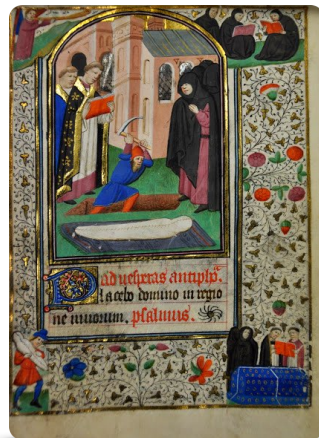 ad vesperas antiph̄a.
Placebo domino in regio
ne vivorum. psalmus.